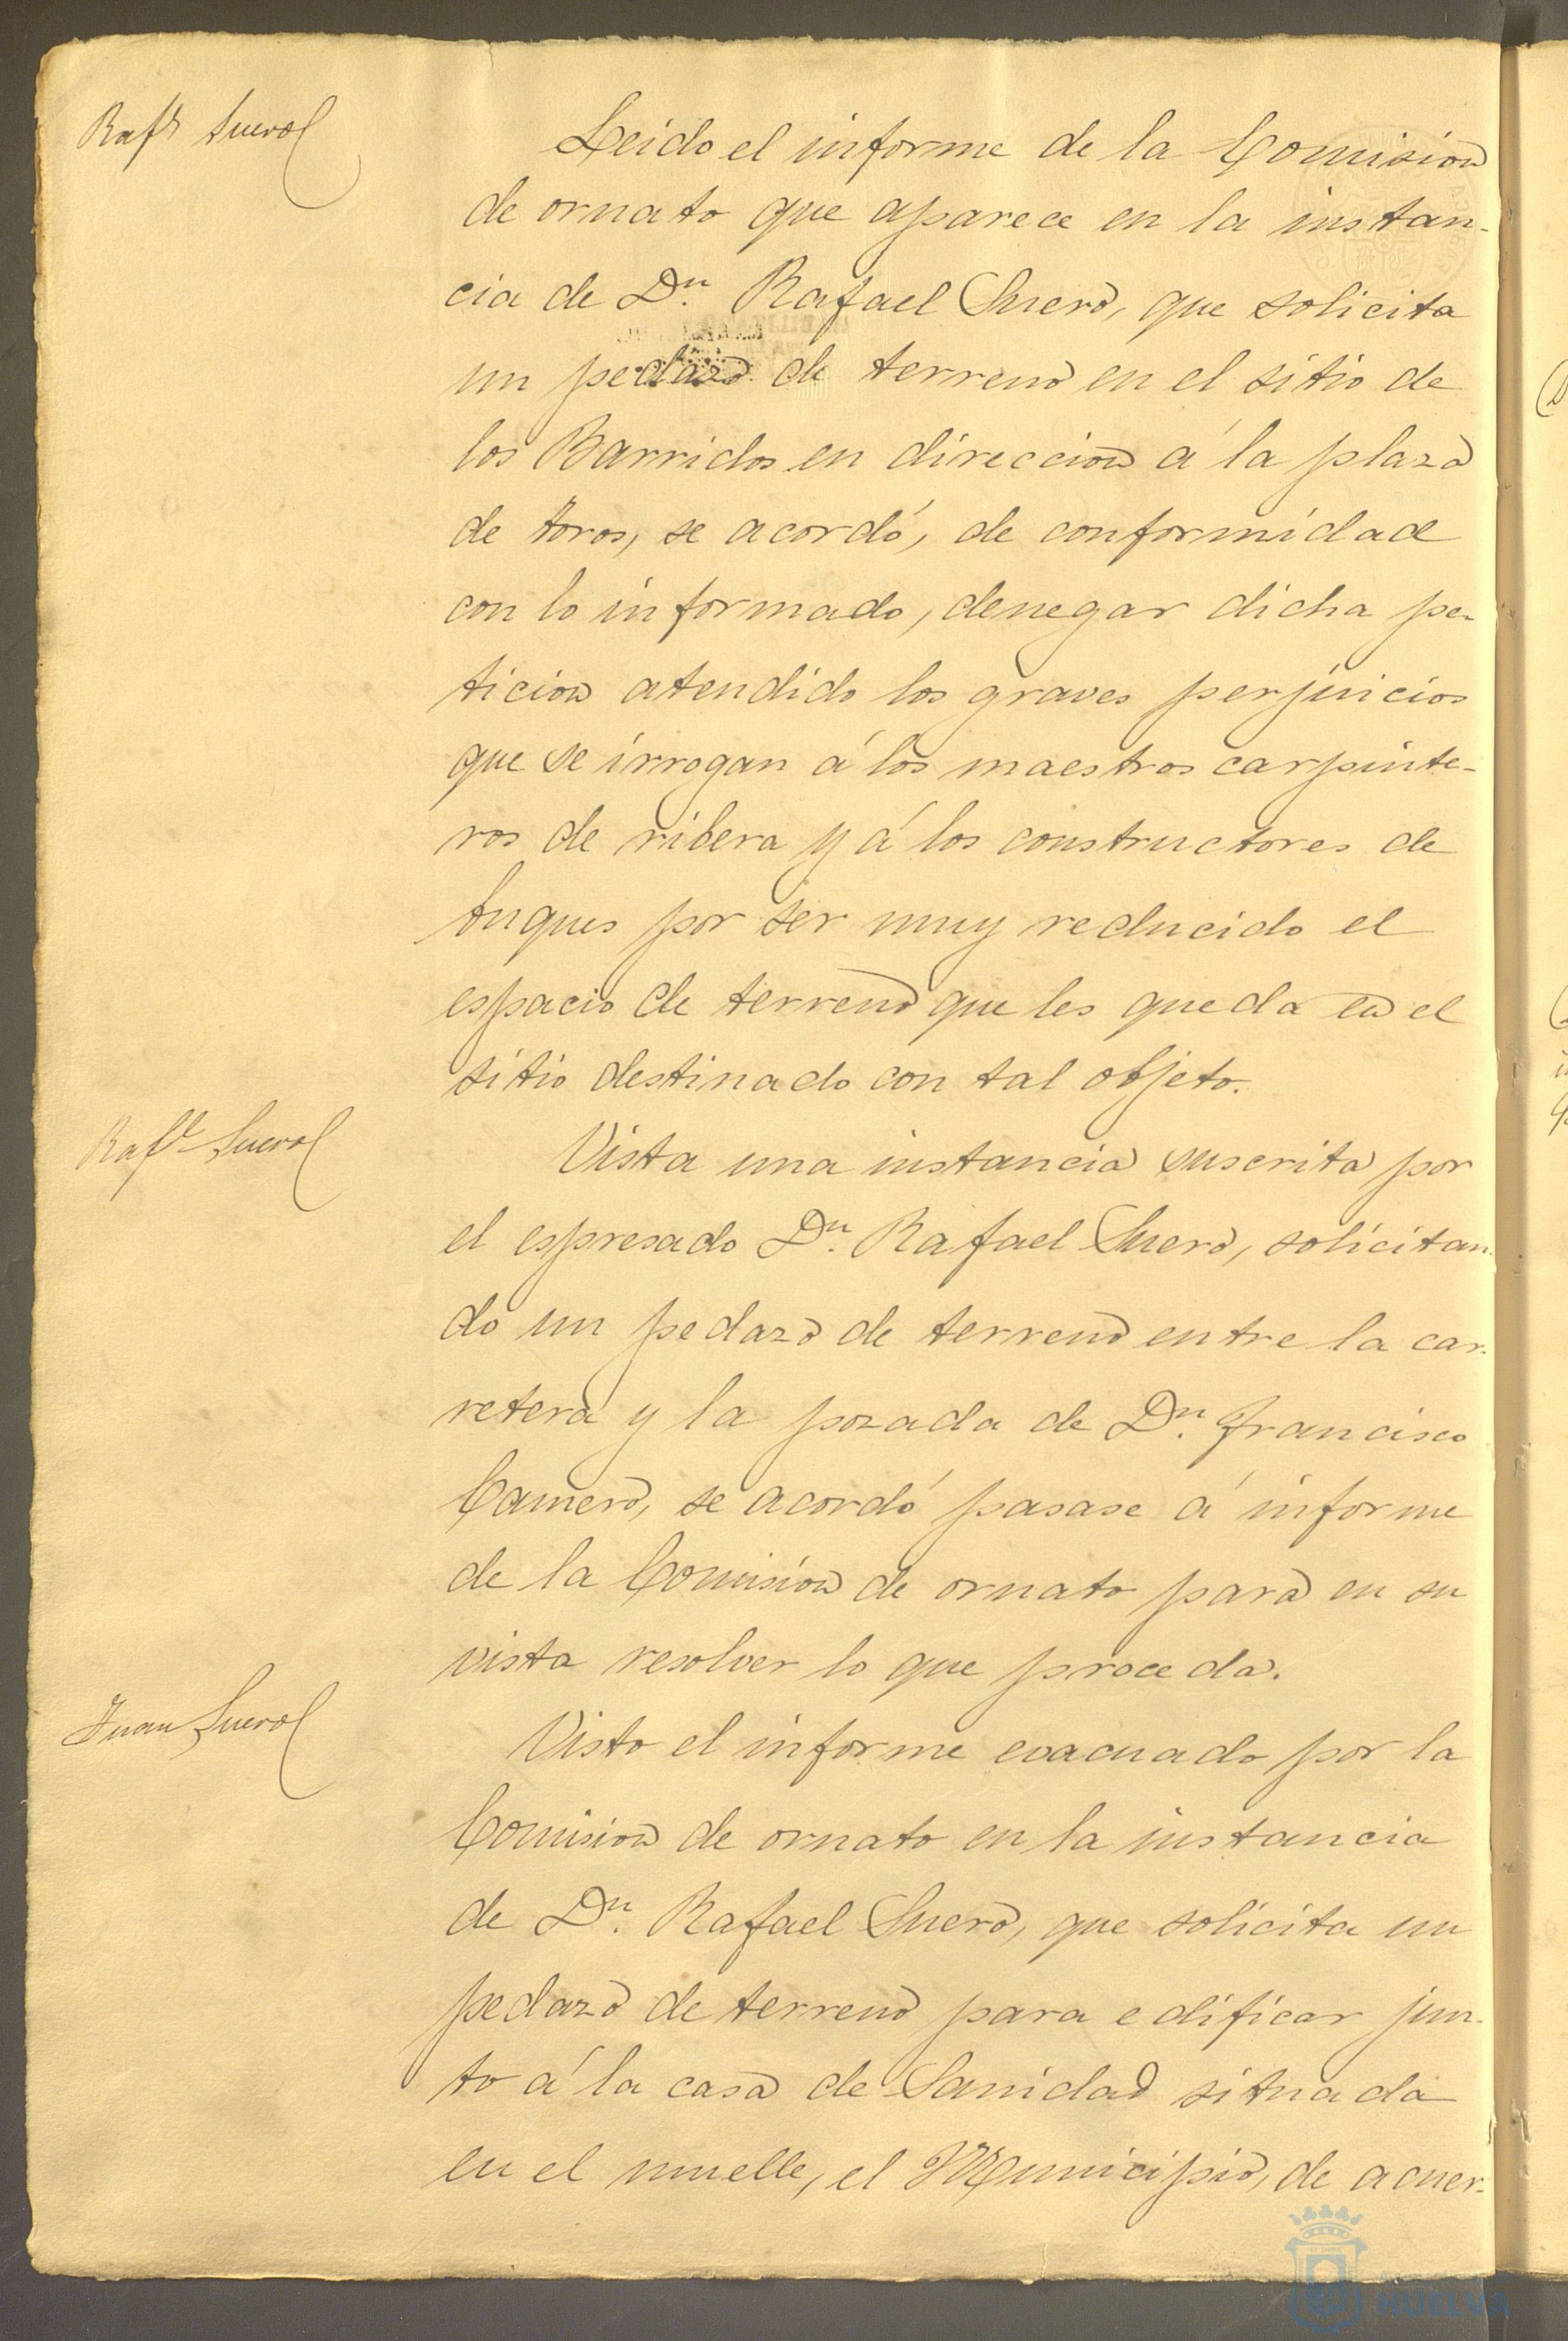 Raf.l Suero
Leido el informe de la Comision
de ornato que aparece en la instan-
cia de Dn. Rafael Suero, que solicita
un pedazo de terreno en el sitio de
los Barridos en direccion á la plaza
de toros, se acordó, de conformidad
con lo informado, denegar dicha pe-
ticion atendido los graves perjuicios
que se irrogan á los maestros carpinte-
ros de ribera y á los constructores de
buques por ser muy reducido el
espacio de terreno que les queda en el
sitio destinado con tal objeto.
Raf.l Suero
Vista una instancia suscrita por
el espresado Dn. Rafael Suero, solicitan-
do un pedazo de terreno entre la car-
retera y la pozada de Dn. Francisco
Camero, se acordó pasase á informe
de la Comision de ornato para en su
vista resolver lo que proceda.
Juan Suero
Visto el informe evacuado por la
Comision de ornato en la instancia
de Dn. Rafael Suero, que solicita un
pedazo de terreno para edificar jun-
to á la casa de Sanidad situada
en el muelle, el Municipio, de acuer-
HUELVA